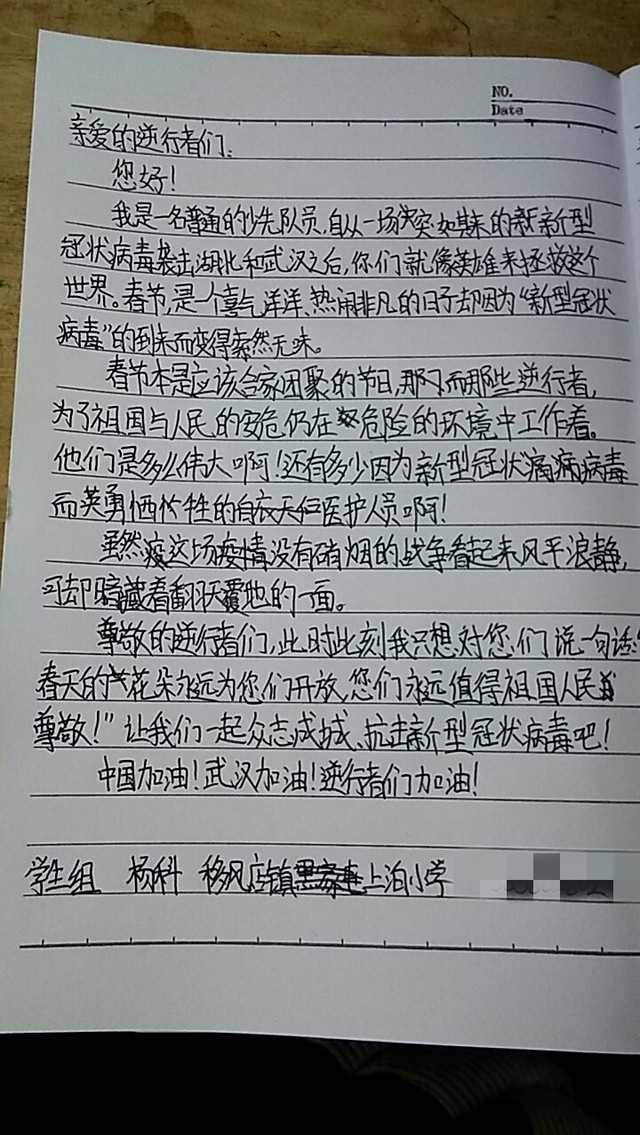 NO.
Date
亲爱的逆行者们:
您好!
我是一名普通的少先队员,自从一场突如其来的新型
冠状病毒袭击湖北和武汉之后,你们就像英雄来拯救这个
世界。春节,是一个喜气洋洋、热闹非凡的日子却因为“新型冠状
病毒”的到来而变得索然无味。
春节本是应该合家团聚的节日,那了而那些逆行者,
为了祖国与人民的安危仍在危险的环境中工作着。
他们是多么伟大啊!还有多少因为新型冠状病病毒
而英勇牺牲的白衣天使医护人员啊!
虽然这场疫情没有硝烟的战争看起来风平浪静,
可却暗藏着翻天覆地的一面。
尊敬的逆行者们,此时此刻我只想对您们说一句话:“
春天的花朵永远为您们开放,您们永远值得祖国人民
尊敬!”让我们一起众志成城、抗击新型冠状病毒吧!
中国加油!武汉加油!逆行者们加油!
学生组 杨科 移风店镇上泊小学